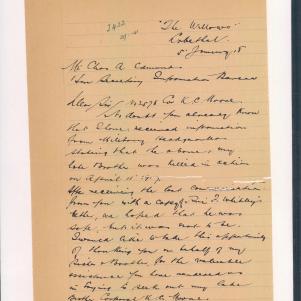 "The Willows"
Lobethal.
5 January 18
Mr Chas A. Edmunds
Hon Secretary Information Bureau
Dear Sir, No 2578 Cor K. C. Moore
No doubt you already know
that I have received information
from Military Headquarters
stating that the above, my
late Brother was killed in action
on April 11" 1917
After receiving the last communication
from you with a copy of Pri. F. Whitley's
letter, we hoped that he was
safe, but it was not to be
I would like to take this opportunity
of thanking you on behalf of my
Sister & Brother for the valuable
assistance you have rendered us
in trying to seek out my late
Brother Corporal K. C. Moore